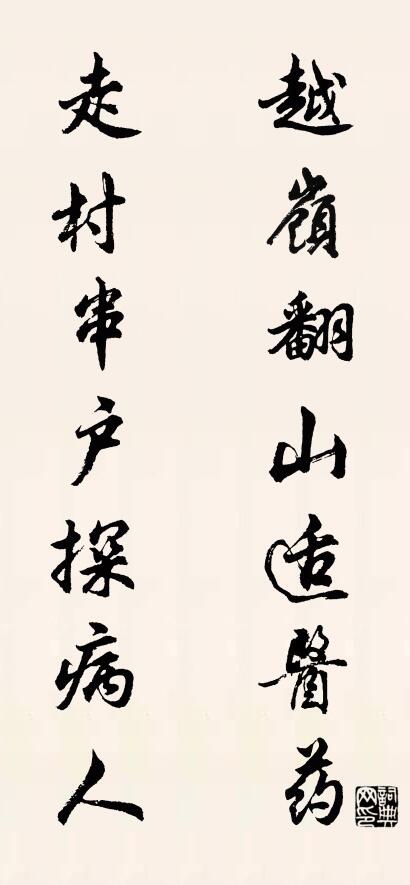 越嶺翻山适醫药
走村串户探病人
詞典网印